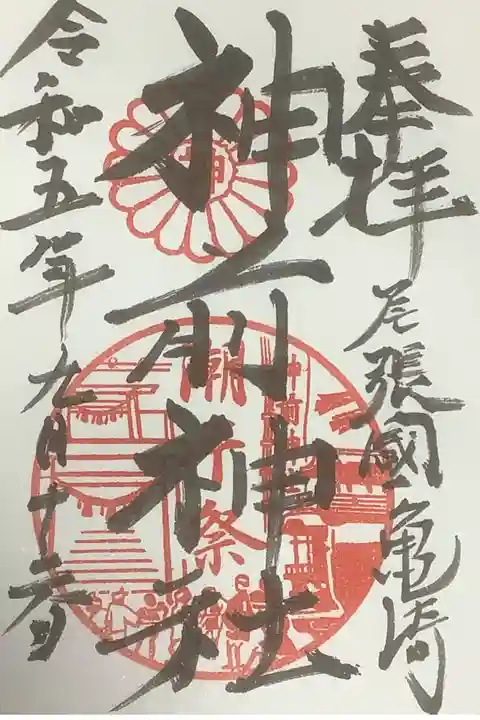 奉拝
尾張國亀崎
神前神社
令和五年九月十
潮干祭
神前神社